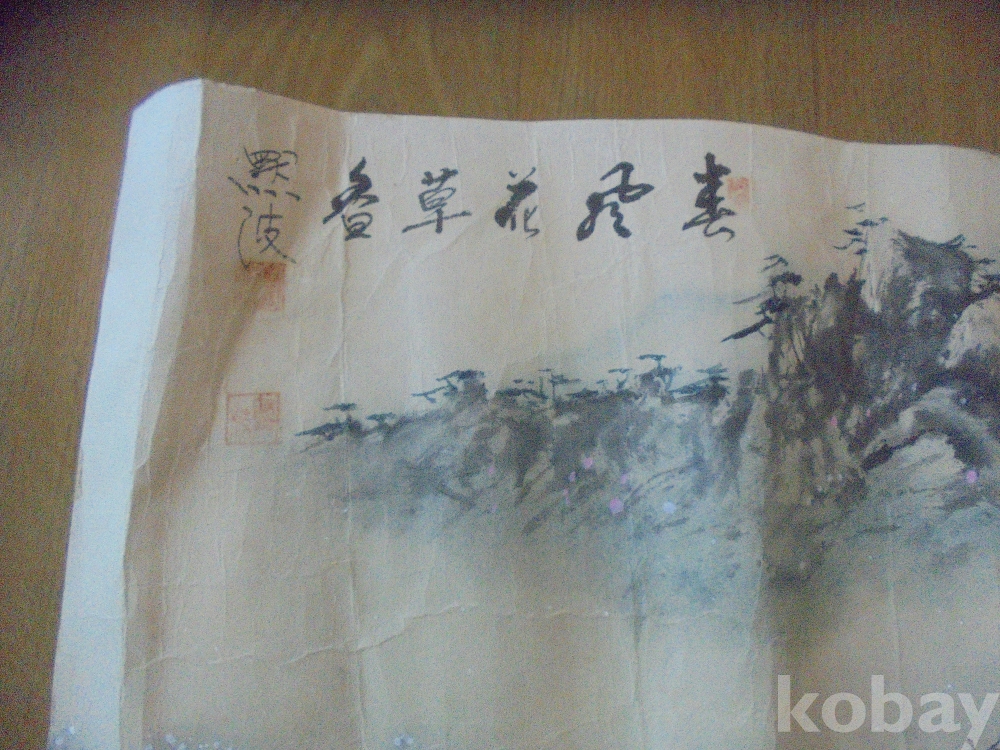 春風花草香
默波
kobay